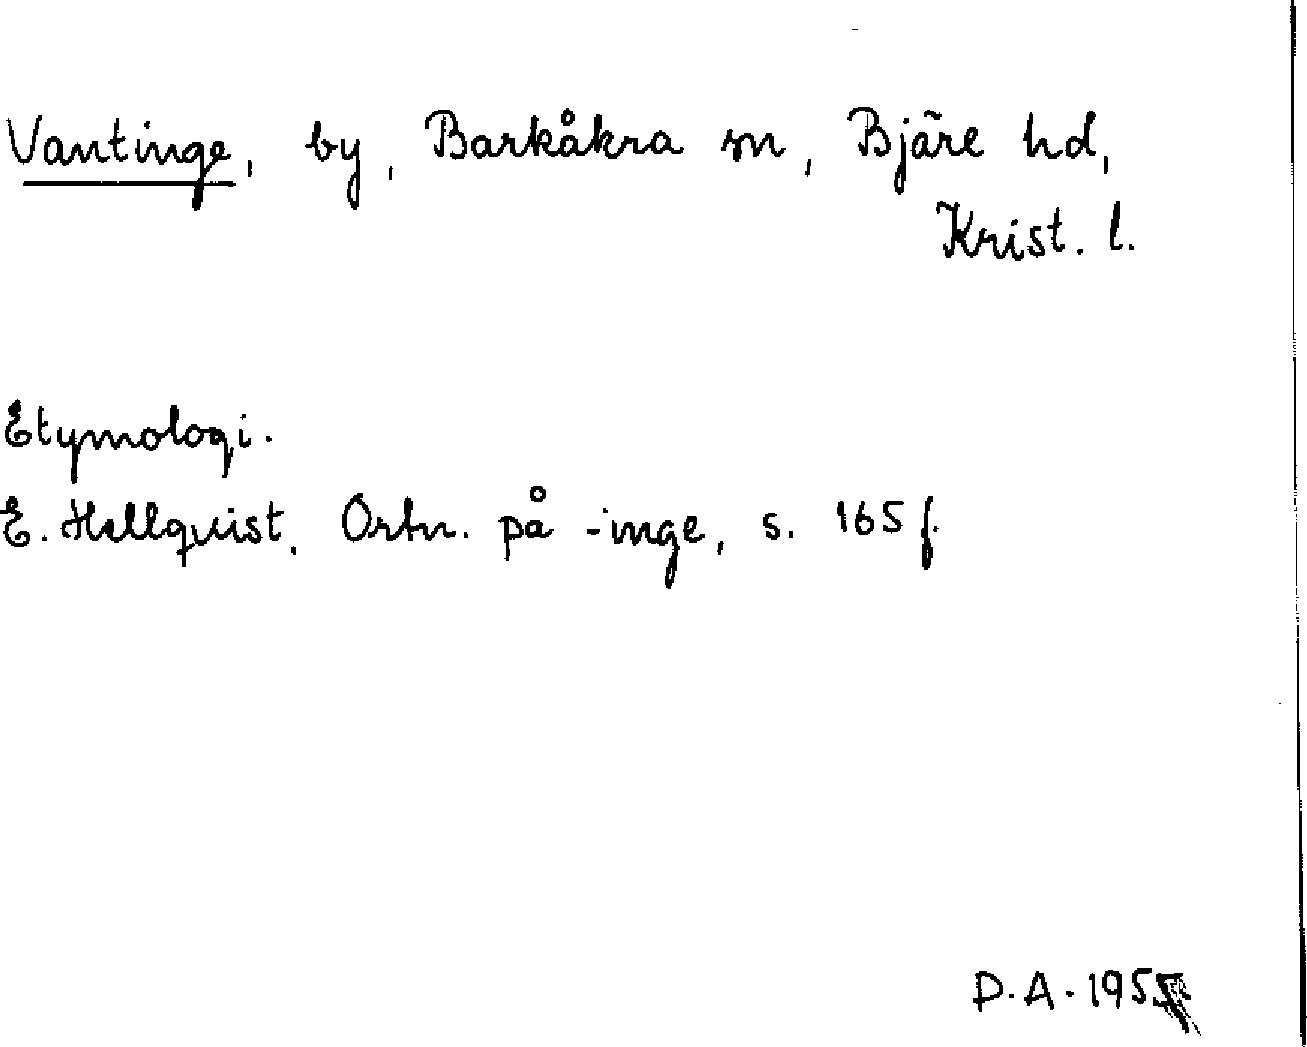 Vantinge, by, Barkåkra sn, Bjäre hd,
Krist. l.
Etymologi.
E. Hellquist, Ortn. på -inge, s. 165 f.
D. A.